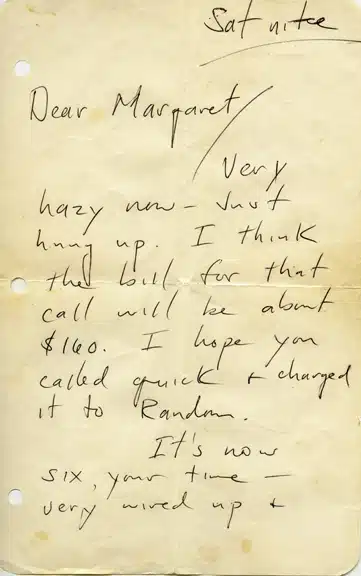 Sat nite
Dear Margaret
Very
hazy now – Just
hung up. I think
the bill for that
call will be about
$160. I hope you
called quick + charged
it to Random.
It's now
six, your time —
very wired up +